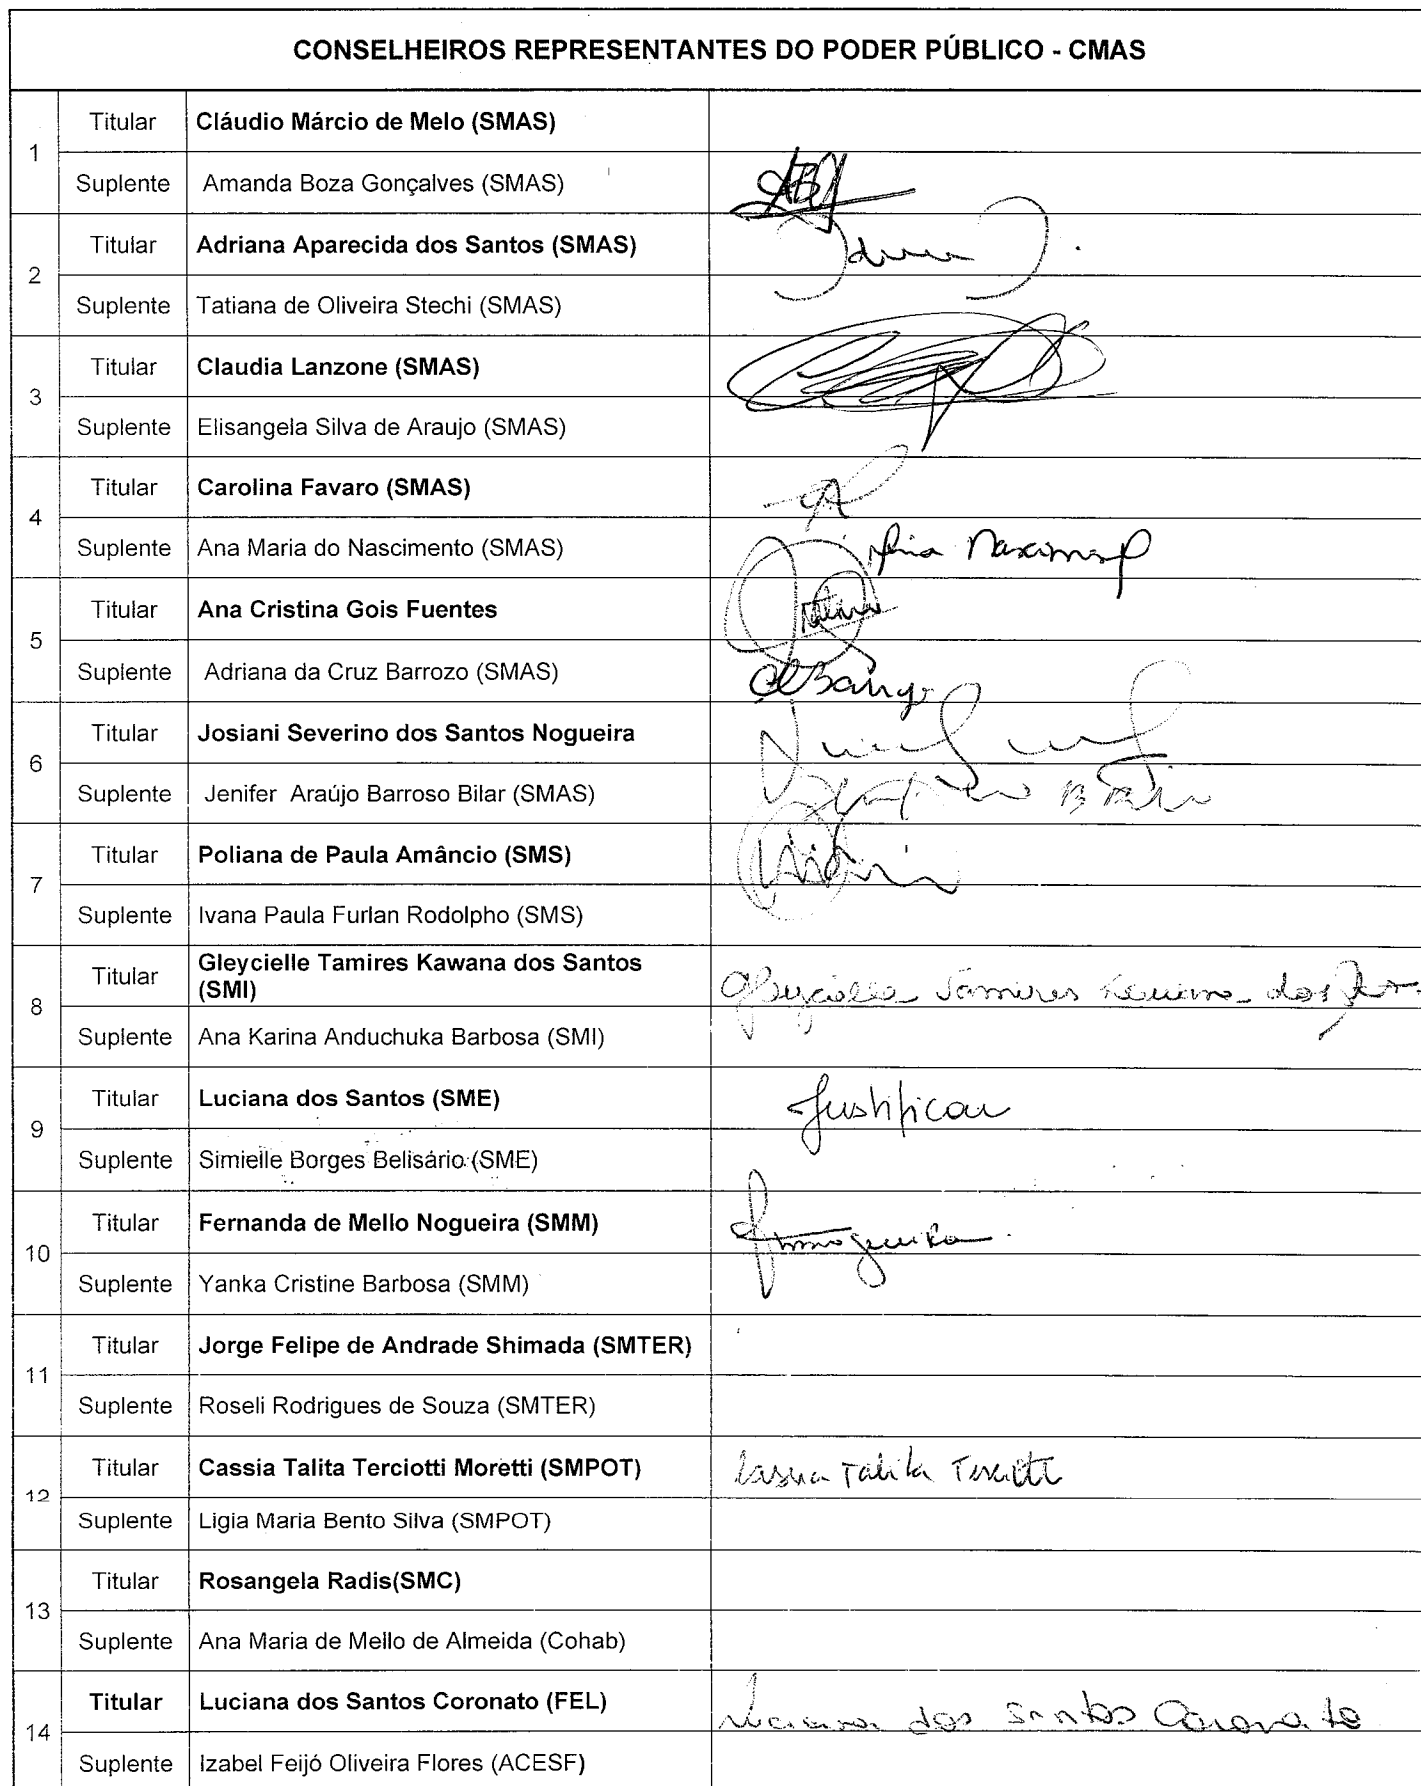 CONSELHEIROS REPRESENTANTES DO PODER PÚBLICO - CMAS
1
Titular Cláudio Márcio de Melo (SMAS)
Suplente Amanda Boza Gonçalves (SMAS)
2
Titular Adriana Aparecida dos Santos (SMAS)
Suplente Tatiana de Oliveira Stechi (SMAS)
3
Titular Claudia Lanzone (SMAS)
Suplente Elisangela Silva de Araujo (SMAS)
4
Titular Carolina Favaro (SMAS)
Suplente Ana Maria do Nascimento (SMAS)
5
Titular Ana Cristina Gois Fuentes
Suplente Adriana da Cruz Barrozo (SMAS)
6
Titular Josiani Severino dos Santos Nogueira
Suplente Jenifer Araújo Barroso Bilar (SMAS)
7
Titular Poliana de Paula Amâncio (SMS)
Suplente Ivana Paula Furlan Rodolpho (SMS)
8
Titular Gleycielle Tamires Kawana dos Santos
(SMI)
Suplente Ana Karina Anduchuka Barbosa (SMI)
9
Titular Luciana dos Santos (SME) Justificou
Suplente Simielle Borges Belisário (SME)
10
Titular Fernanda de Mello Nogueira (SMM)
Suplente Yanka Cristine Barbosa (SMM)
11
Titular Jorge Felipe de Andrade Shimada (SMTER)
Suplente Roseli Rodrigues de Souza (SMTER)
12
Titular Cassia Talita Terciotti Moretti (SMPOT) Cassia Talita Terciotti
Suplente Ligia Maria Bento Silva (SMPOT)
13
Titular Rosangela Radis(SMC)
Suplente Ana Maria de Mello de Almeida (Cohab)
14
Titular Luciana dos Santos Coronato (FEL) Luciana dos Santos Coronato
Suplente Izabel Feijó Oliveira Flores (ACESF)